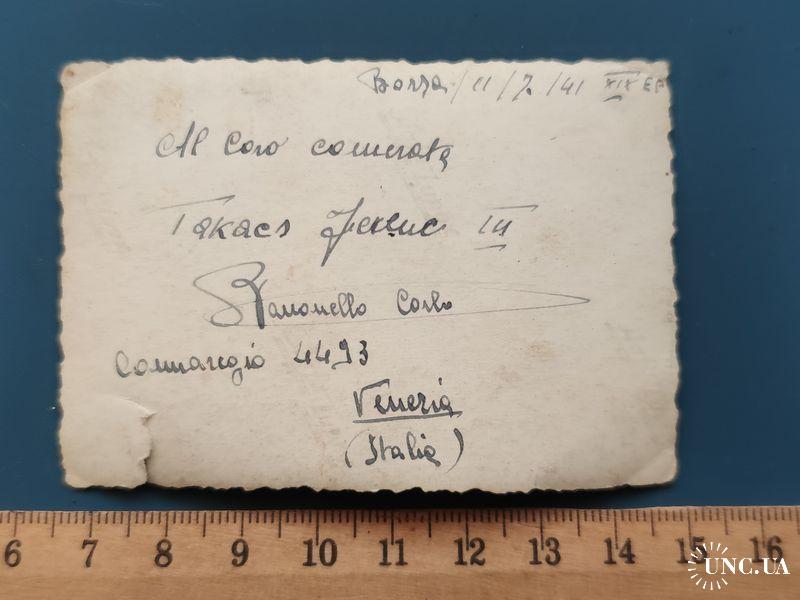 Borsa. 11/7./41 XIX EF
Al Caro camerata
Takacs Ferenc III
Ramonello Carlo
Connaregio 4493
Venezia
(Italia)
6 7 8 9 10 11 12 13 14 15 16
UNC.UA